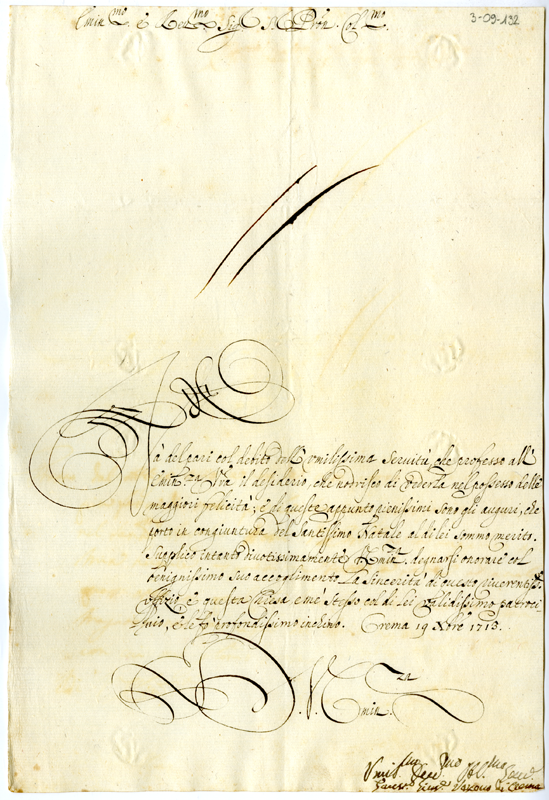 3-09-132
Emin.mo e Reu.mo Sig.r Pron Col.mo
Và del pari col debito dell' umilissima servitù, che professo all'
Emin.za Vra il desiderio, che nodrisco di vederla nel possesso delle
maggiori felicità; e di queste appunto pienissimi sono gli auguri, che
porto in congiuntura del Santissimo Natale al di lei sommo merito.
Supplico intanto divotissimamente V. Emin.za degnarsi onorare col
benignissimo suo accoglimento la sincerità di questo riverentis.mo
offizio, e questa Chiesa e me stesso col di Lei validissimo patroci-
nio, e le fò profondissimo inchino. Crema 19 Xbre 1713.
D. V. Emin.za
Umil.mo Deu.mo
Vescovo di Crema